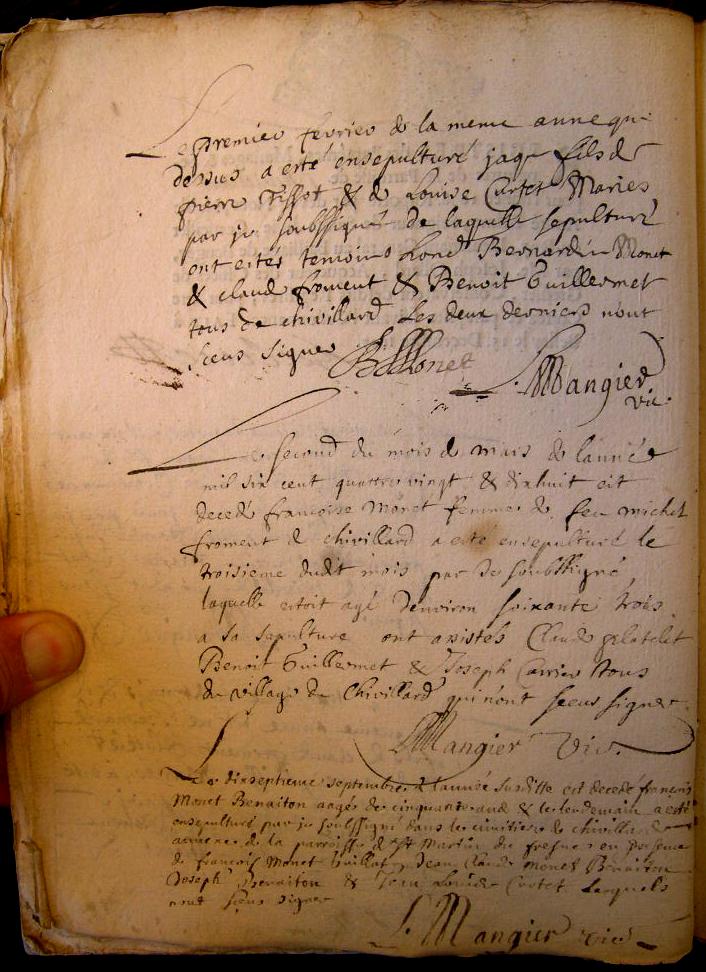 Le premier fevrier de la meme anne que
dessus a esté ensepulturé jaqe fils de
pierre Tissot & de Louise Curtet Maries
par je soubssigné de laquelle sepulture
ont estés temoins hond Bernardin Monet
& claude froment & Benoit Guillermet
tous de chivillard Les deux derniers nont
sceus signer B Monet
Mangier
vic.
Le second du mois de mars de lannée
mil six cent quattre vingt & dixhuit est
decedé francoise Monet femme de feu michel
froment de chivillard a esté ensepulturé le
troisieme dudit mois par je soubssigné
laquelle estoit agé denviron soixante trois
a sa sepulture ont asistés Claude platelet
Benoit Guillermet & Joseph Carrier tous
du village de Chivillard qui nont sceus signer
Mangier Vic.
Le dixseptieme septembre de lannée susditte est decedé francois
Monet Benaiton aagés de cinquante & le lendemain a esté
ensepulturé par je soubssigné dans le cimitiere de chivillard
annexe de la parroisse de St Martin du fresne en presence
de francois Monet Guillat, Jean Claude Monet Benaiton
Joseph Benaiton & Jean Louis Curtet Lesquels
nont sceus signer
Mangier vic.